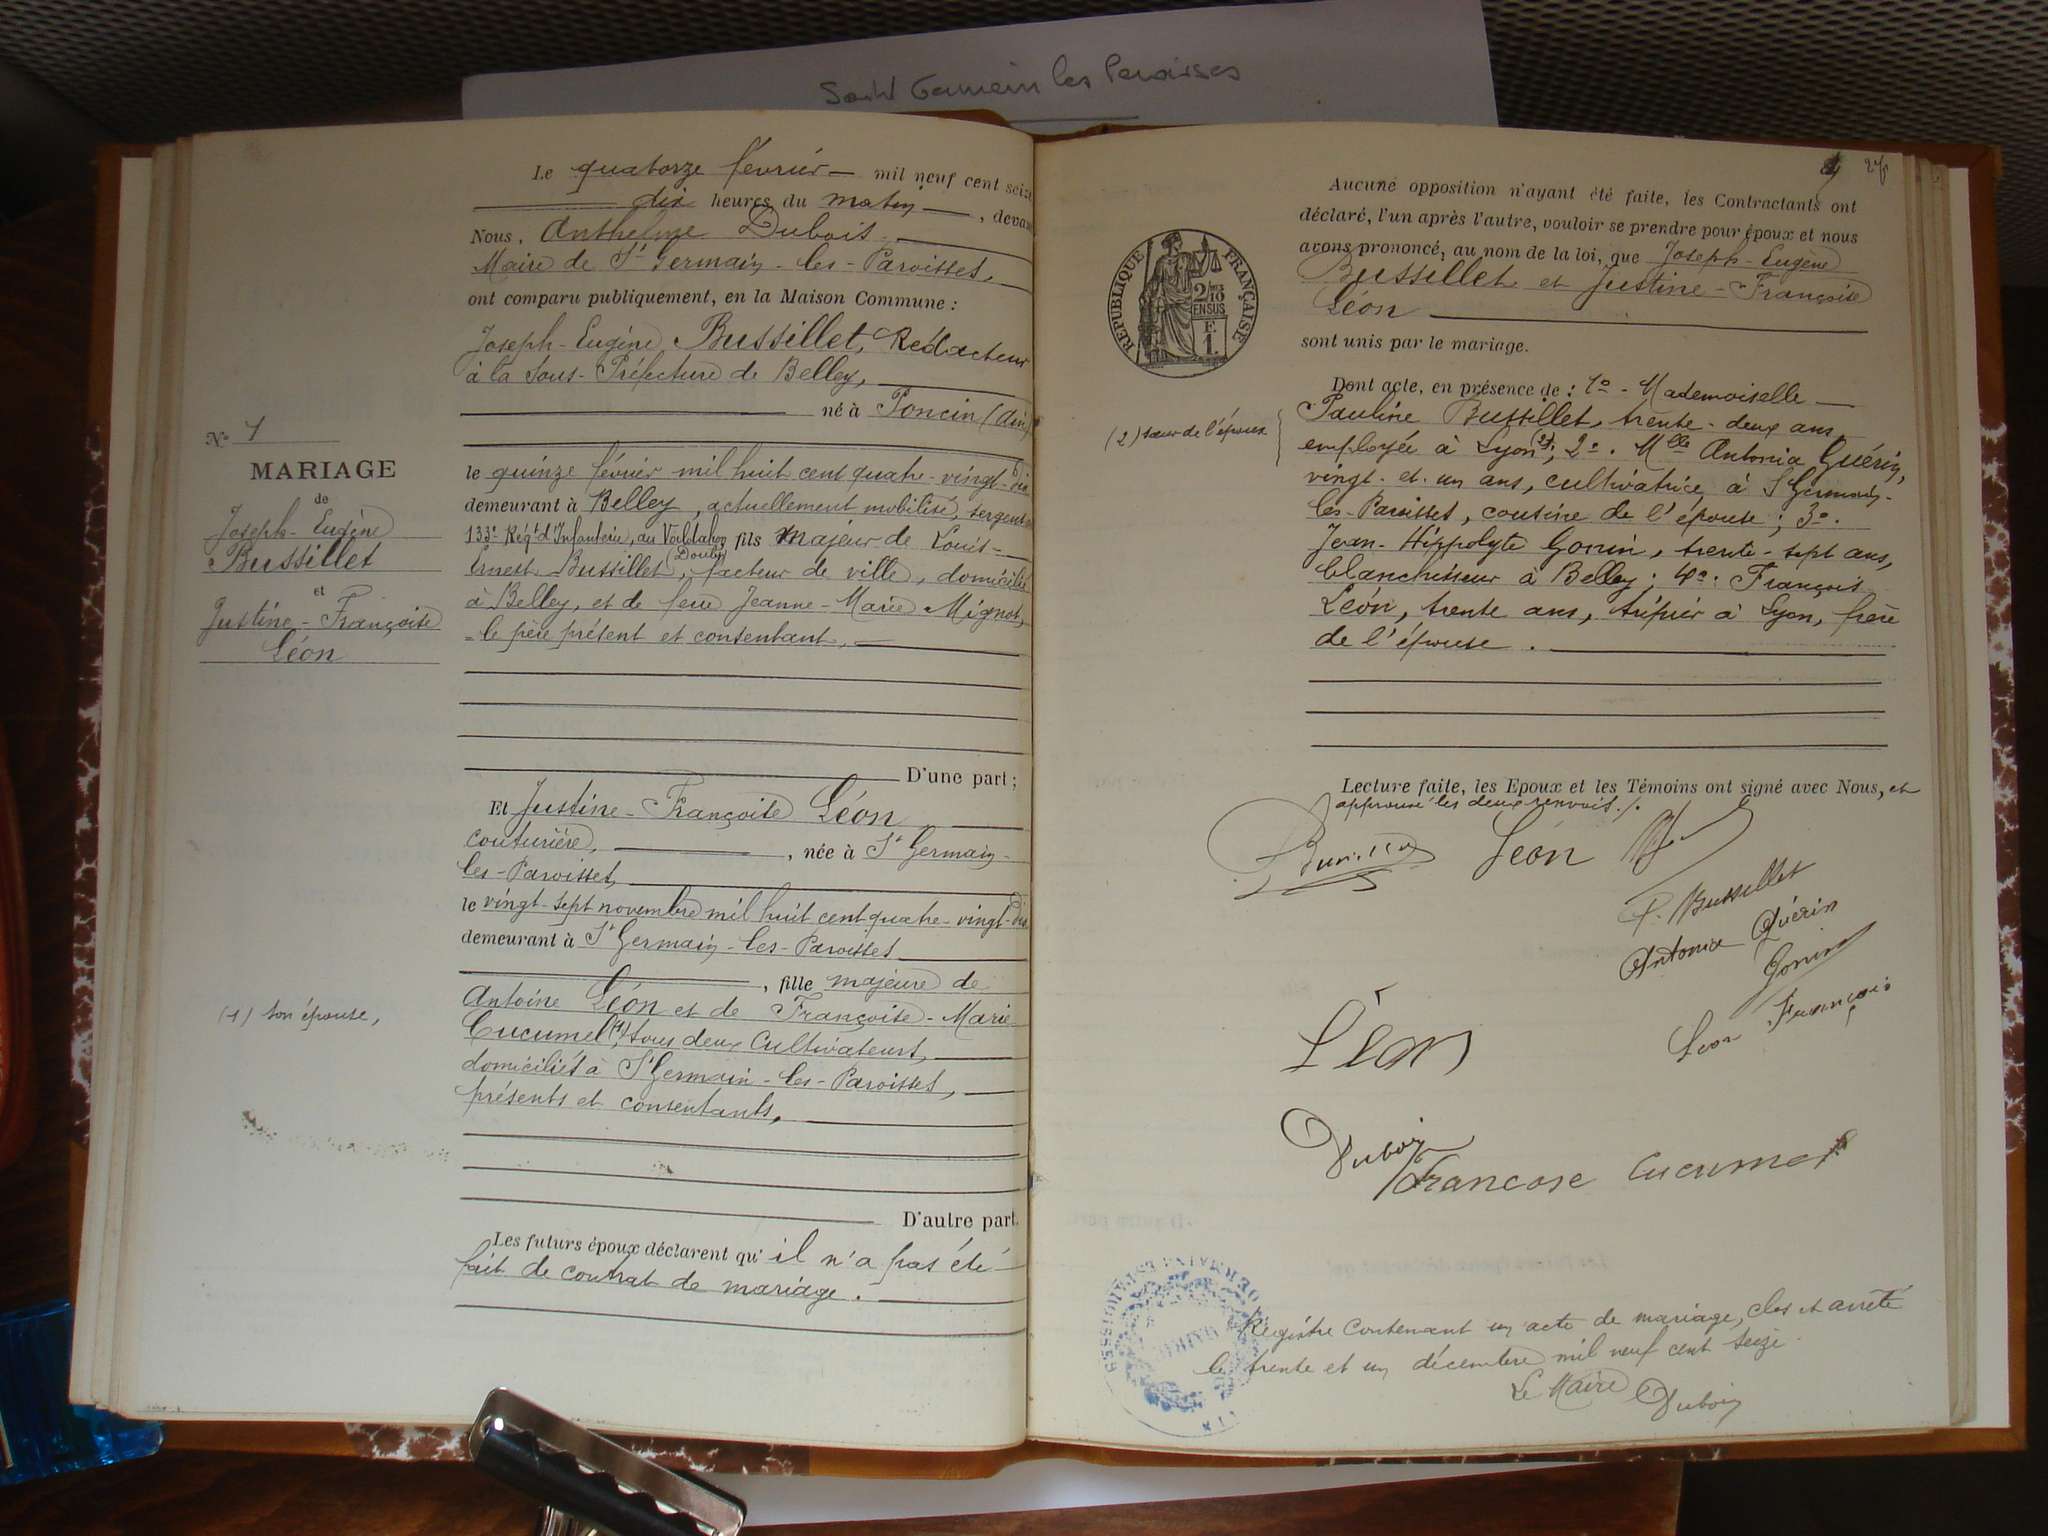 Saint Germain les Paroisses
Le quatorze février — mil neuf cent seize
dix heures du matin —, devan
Nous, Anthelme Dubois
Maire de St Germain-les-Paroisses,
ont comparu publiquement, en la Maison Commune :
Joseph-Eugène Bussillet, Rédacteur
à la Sous-Préfecture de Belley,
né à Poncin (Ain)
le quinze février mil huit cent quatre-vingt-dix
demeurant à Belley, actuellement mobilisé, sergent
133e Régt d'Infanterie, au Valdahon, fils majeur de Louis-
(Douby)
Ernest Bussillet, facteur de ville, domicilié
à Belley, et de feue Jeanne-Marie Mignot,
- le père présent et consentant,
D'une part ;
Et Justine-Françoise Léon
couturière, , née à St Germain-
les-Paroisses
le vingt-sept novembre mil huit cent quatre-vingt-dix
demeurant à St Germain-les-Paroisses
, fille majeure de
Antoine Léon et de Françoise-Marie
Cucumel (1), tous deux Cultivateurs,
domiciliés à St Germain-les-Paroisses,
présents et consentants,
D'autre part.
Les futurs époux déclarent qu'il n'a pas été
fait de contrat de mariage.
No 1
MARIAGE
de
Joseph-Eugène
Bussillet
et
Justine-Françoise
Léon
(1) son épouse,
27
Aucune opposition n'ayant été faite, les Contractants ont
déclaré, l'un après l'autre, vouloir se prendre pour époux et nous
avons prononcé, au nom de la loi, que Joseph-Eugène
Bussillet et Justine-Françoise
Léon
sont unis par le mariage.
RÉPUBLIQUE FRANÇAISE
2/10
EN SUS
E.
1.
Dont acte, en présence de : 1o - Mademoiselle —
Pauline Bussillet, trente-deux ans,
employée à Lyon (2); 2o. Mlle Antonia Guérin,
vingt-et-un ans, cultivatrice à St Germain-
les-Paroisses, cousine de l'épouse ; 3o.
Jean-Hippolyte Gonin, trente-sept ans,
blanchisseur à Belley ; 4o. François
Léon, trente ans, tripier à Lyon, frère
de l'épouse.
(2) sœur de l'époux
Lecture faite, les Epoux et les Témoins ont signé avec Nous, et
approuvé les deux renvois./.
Léon
P. Bussillet
Antonia Guérin
Gonin
Léon François
Léon
Dubois
Francose Cucumel
MAIRIE
Registre contenant un acte de mariage, clos et arrêté
le trente et un décembre mil neuf cent seize.
Le Maire Dubois